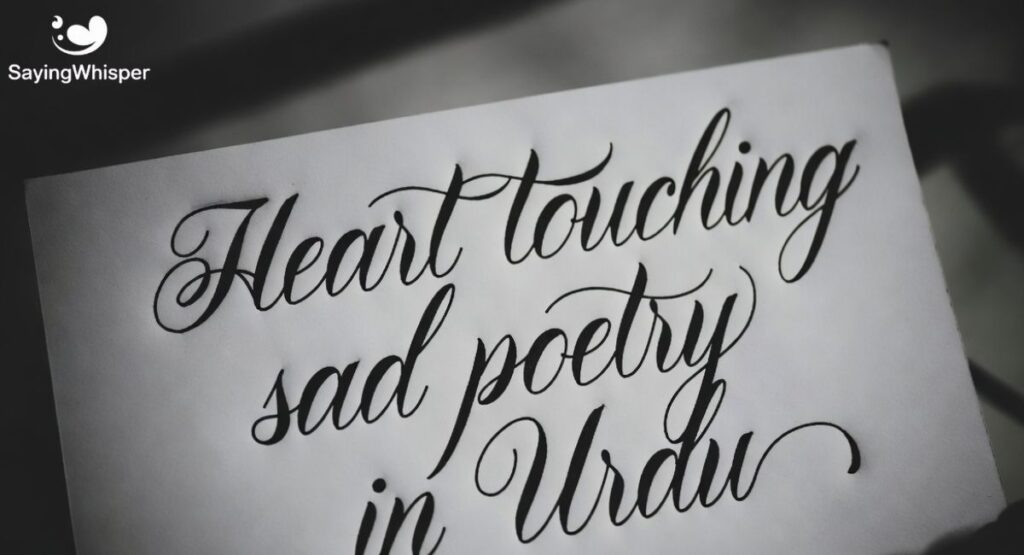 SayingWhisper
Heart touching
sad poetry
in Urdu